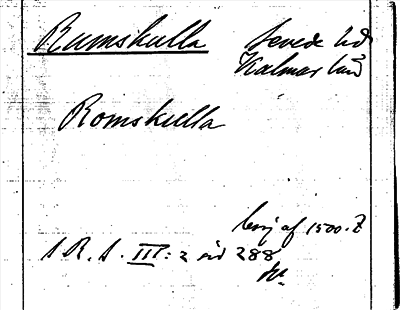 Rumskulla Sevede hd
Kalmar län
Romskulla
beg af 1500-t
S R. A. III: 2 sid 288